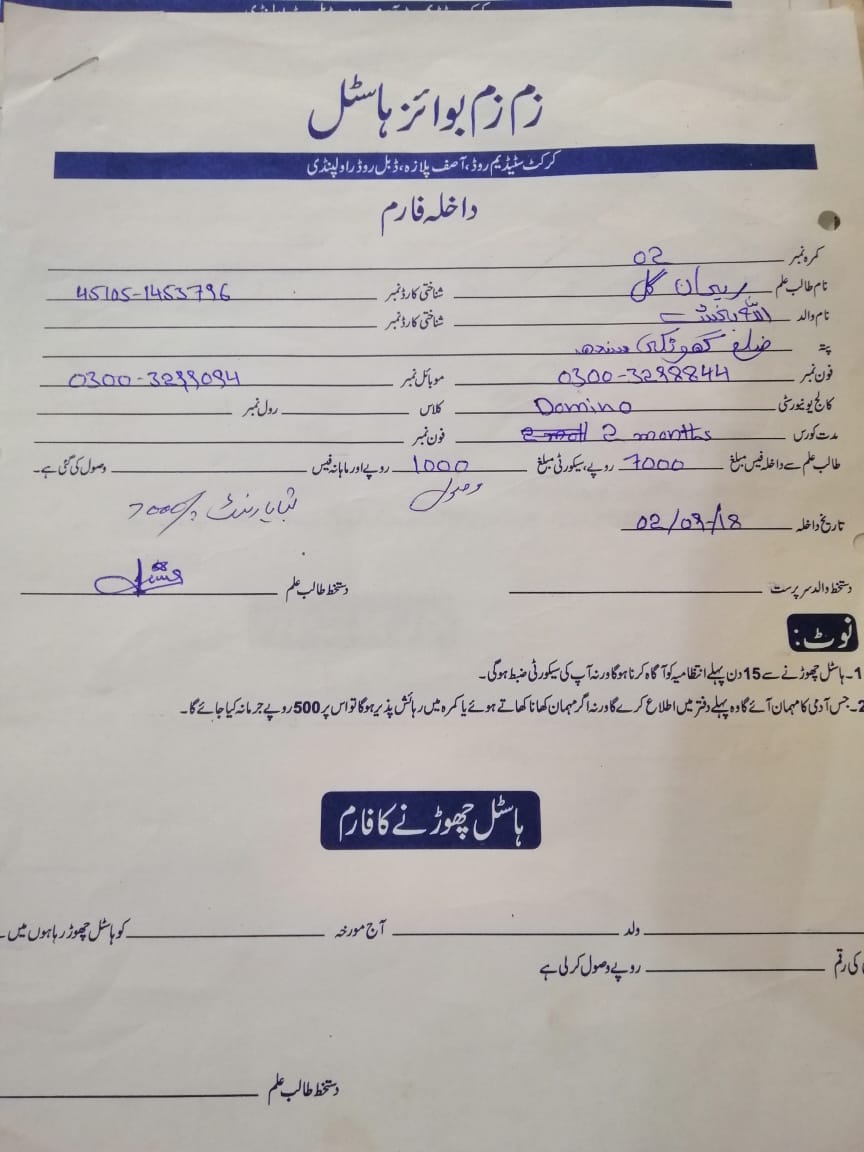 زم زم بوائز ہاسٹل
کرکٹ سٹیڈیم روڈ، آصف پلازہ، ڈبل روڈ راولپنڈی
داخلہ فارم
کمرہ نمبر 02
نام طالب علم ریحان گل شناختی کارڈ نمبر 45105-1453796
نام والد اللہ بخش شناختی کارڈ نمبر
پتہ ضلع گھوٹکی سندھ
فون نمبر 0300-3298844 موبائل نمبر 0300-3299094
کالج یونیورسٹی Domino کلاس رول نمبر
مدت کورس 2 months فون نمبر
طالب علم سے داخلہ فیس مبلغ 7000 روپے، سیکورٹی مبلغ 1000 روپے اور ماہانہ فیس وصول کی گئی ہے۔
وصول
7000/
تاریخ داخلہ 02/09/18
دستخط والد سرپرست دستخط طالب علم
نوٹ:
1۔ ہاسٹل چھوڑنے سے 15 دن پہلے انتظامیہ کو آگاہ کرنا ہوگا ورنہ آپ کی سیکورٹی ضبط ہوگی۔
2۔ جس آدمی کا مہمان آئے گا وہ پہلے دفتر میں اطلاع کرے گا ورنہ اگر مہمان کھانا کھاتے ہوئے یا کمرہ میں رہائش پذیر ہوگا تو اس پر 500 روپے جرمانہ کیا جائے گا۔
ہاسٹل چھوڑنے کا فارم
ولد آج مورخہ کو ہاسٹل چھوڑ رہا ہوں میں۔
کی رقم روپے وصول کر لی ہے
دستخط طالب علم